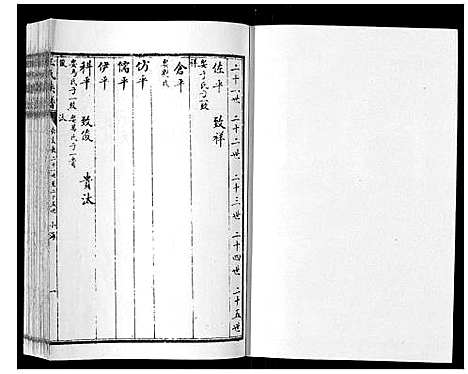 二十一世 二十二世 二十三世 二十四世 二十五世
佐平 致祥
娶于氏子一致
祥
倉平
娶劉氏
坊平
儒平
伊平
科平 致俊 貴汰
娶馬氏子一致 娶葛氏子一貴
俊 汰
一